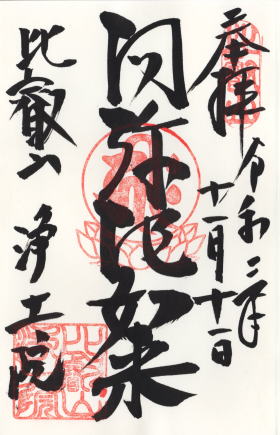 奉拝
令和二年
十一月十一日
阿弥陀如来
比叡山
浄土院